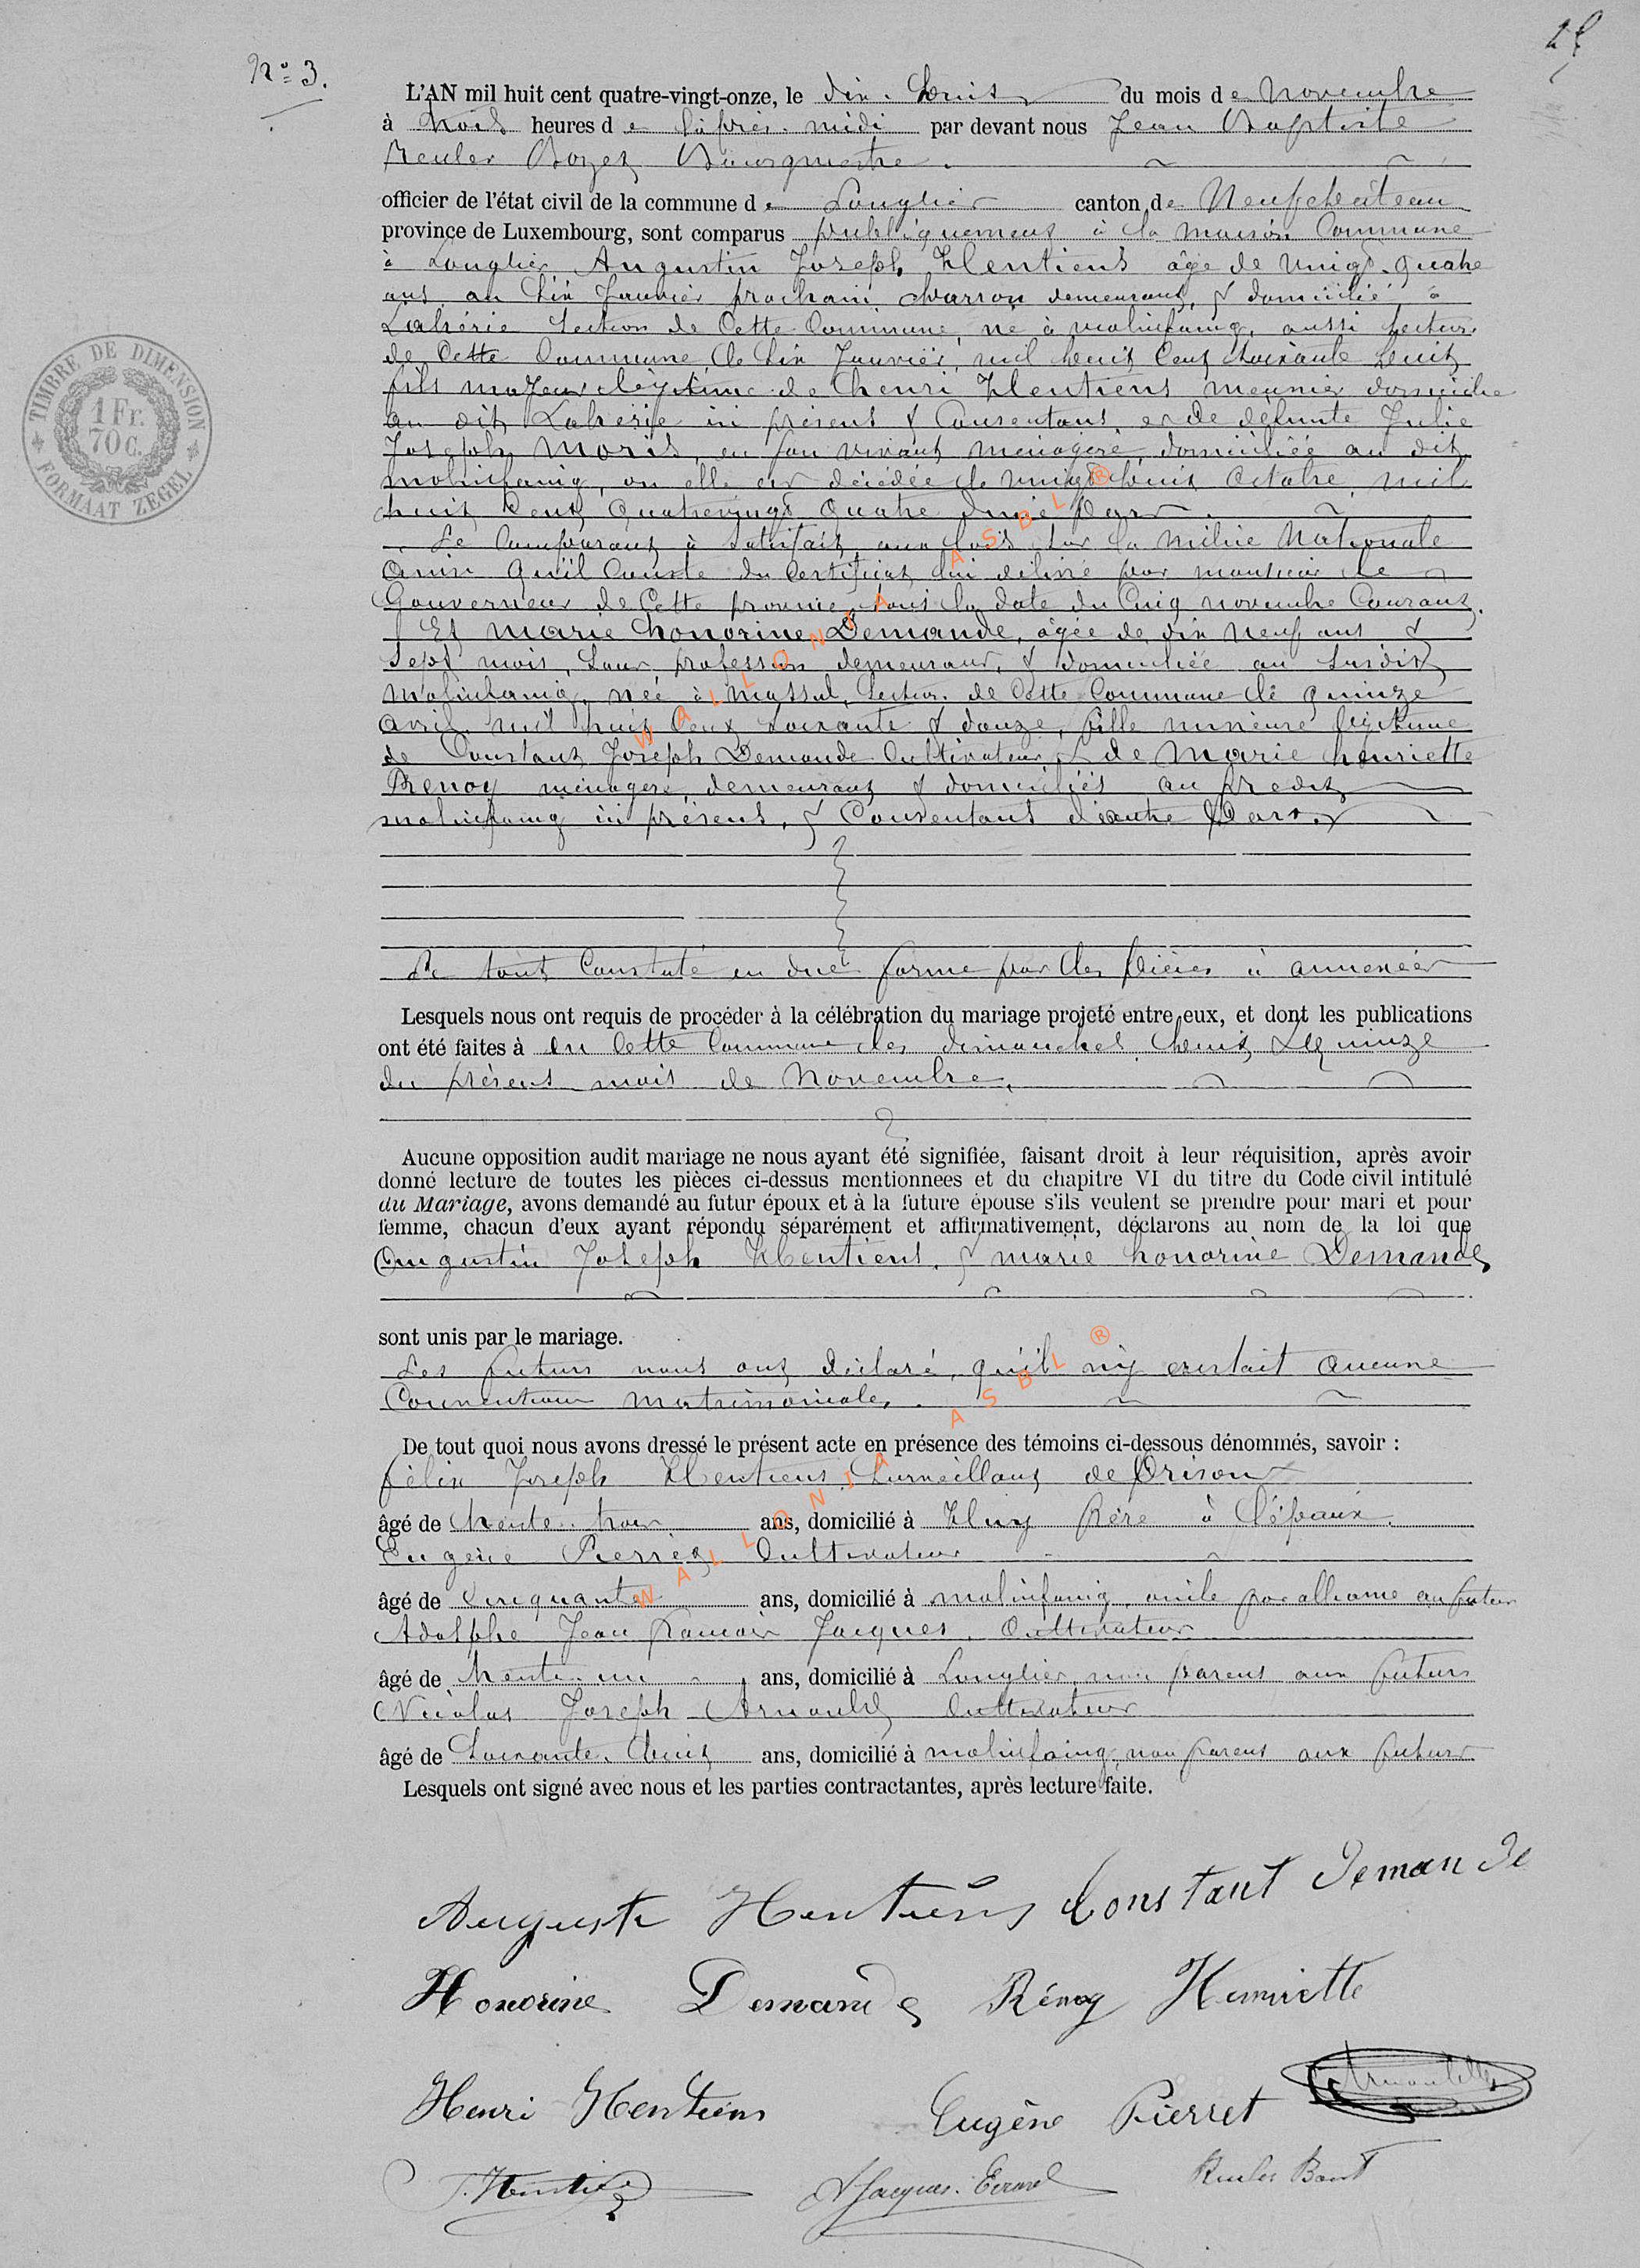 25
No 3.
L'AN mil huit cent quatre-vingt-onze, le dix-huit du mois de novembre
à trois heures de l'après-midi par devant nous Jean Baptiste
Reuler Bozet Bourgmestre
officier de l'état civil de la commune de Longlier canton de Neufchateau
province de Luxembourg, sont comparus publiquement à la maison Commune
à Longlier Augustin Joseph Hentiens âgé de vingt-quatre
ans au dix Janvier prochain charron demeurant & domicilié à
Lahérie section de Cette Commune, né à molinfaing, aussi section
de Cette Commune, le dix Janvier, mil huit Cent soixante huit
fils majeur légitime de henri Hentiens meunier domicilié
au dit Lahérie ici présent & Consentant et de défunte Julie
Joseph Moris, en son vivant ménagère, domiciliée au dit
molinfaing, où elle est décédée le vingt huit Octobre, mil
huit Cent quatrevingt quatre d'une part.
Le Comparant à satisfait aux lois sur la milice Nationale
Ainsi qu'il Conste du Certificat lui délivré par monsieur le
Gouverneur de Cette province, sous la date du Cinq novembre Courant.
Et Marie honorine Demande, âgée de dix neuf ans &
sept mois, sans profession demeurant, & domiciliée au susdit
Molinfaing, née à Massul, section de Cette Commune le quinze
avril mil huit Cent soixante & douze, fille mineure légitime
de Constant Joseph Demande Cultivateur & de Marie henriette
Renoy ménagère, demeurant & domiciliés au predit
molinfaing ici présents, & Consentants d'autre Part.
Le tout Constaté en due forme par les pièces à annexer
Lesquels nous ont requis de procéder à la célébration du mariage projeté entre eux, et dont les publications
ont été faites à en Cette Commune les dimanches huit & quinze
du présent mois de Novembre.
Aucune opposition audit mariage ne nous ayant été signifiée, faisant droit à leur réquisition, après avoir
donné lecture de toutes les pièces ci-dessus mentionnees et du chapitre VI du titre du Code civil intitulé
du Mariage, avons demandé au futur époux et à la future épouse s'ils veulent se prendre pour mari et pour
femme, chacun d'eux ayant répondu séparément et affirmativement, déclarons au nom de la loi que
Augustin Joseph Hentiens & marie honorine Demande
sont unis par le mariage.
Les futurs nous ont déclaré, qu'il n'y existait aucune
Convention matrimoniale.
De tout quoi nous avons dressé le présent acte en présence des témoins ci-dessous dénommés, savoir :
félix Joseph Hentiens Surveillant de Prison
âgé de trente-trois ans, domicilié à Huy frère à l'époux.
Eugène Pierret Cultivateur
âgé de Cinquante ans, domicilié à molinfaing, oncle par alliance au futur
Adolphe Jean Romain Jacques, Cultivateur
âgé de trente-un ans, domicilié à Longlier, non parent aux futurs
Nicolas Joseph Arnould Cultivateur
âgé de Soixante-huit ans, domicilié à molinfaing, non parent aux futurs
Lesquels ont signé avec nous et les parties contractantes, après lecture faite.
Auguste Hentiens Constant Demande
Honorine Demande Rénoy Henriette
Henri Hentiens Eugène Pierret
A Jacques
TIMBRE DE DIMENSION
1 Fr.
70 C.
FORMAAT ZEGEL
WALLONIA ASBL ®
WALLONIA ASBL ®